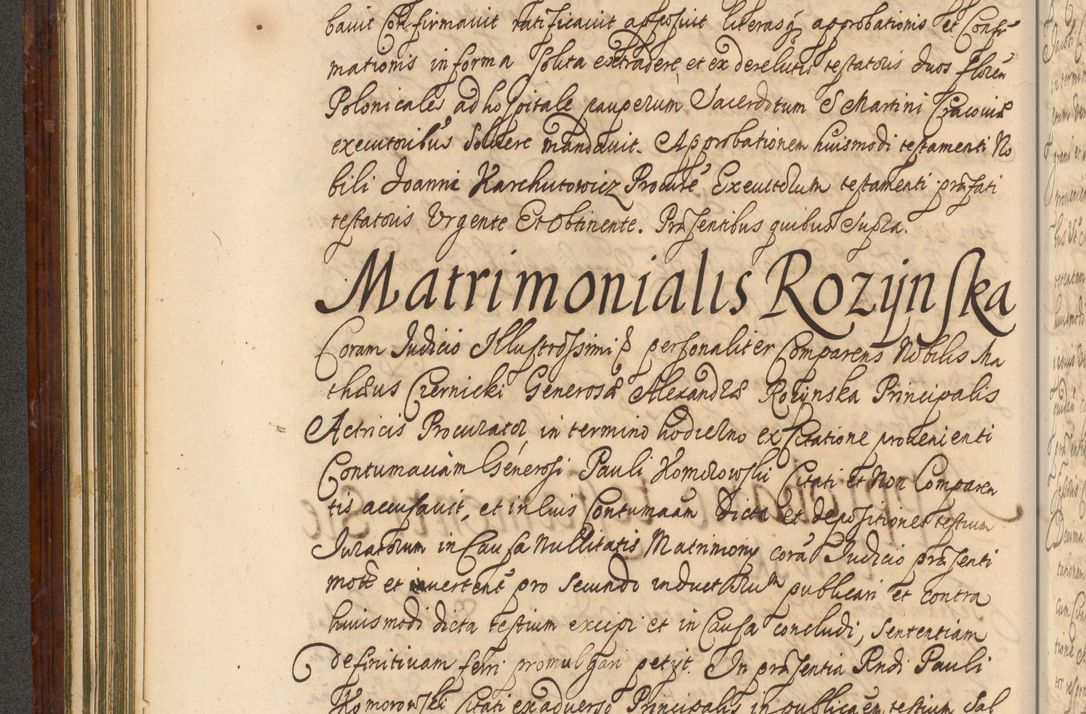 bavit Confirmavit ratificavit apposuit literasq approbationis et Confir
mationis in forma solita extradere, et ex derelictis testatoris duos floren
Polonicales ad hospitale pauperum Sacerdotum S Martini Cracoviæ
executoribus solvere mandavit. Approbationem huismodi testamenti No
bili Joanne Harchutowicz Procure Executorum testamenti præfati
testatoris Urgente Et Obtinente. Præsentibus quibus Supra.
Matrimonialis Rozynska
Coram Judicio Illustrissimi personaliter Comparens Nobilis Ma
thæus Czernicki Generosæ Alexandræ Rozynska Principalis
Actricis Procurator in termino hodierno ex Citatione provenienti
Contumaciam Generosi Pauli Komorowski Citati et Non Comparen
tis accusavit, et in Eius Contumaam Dicta et depositiones testium
Juratorum in Causa Nullitatis Matrimony cora Judicio præsenti
mote et invertente pro secundo inductorum publicari et contra
huiusmodi dicta testium excipi et in Causa concludi, Sententiam
Definitivam ferri promulgari petyt. In præsentia Rndi Pauli
Komorowski Citati ex adverso Principalis in publicaem testium sal